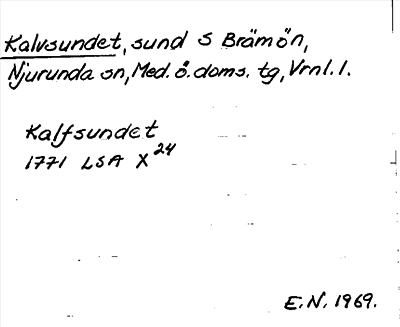 Kalvsundet, sund S Brämön,
Njurunda sn, Med. ö. doms. tg, Vrnl. l.
Kalfsundet
1771 LSA X 24
E. N. 1969.